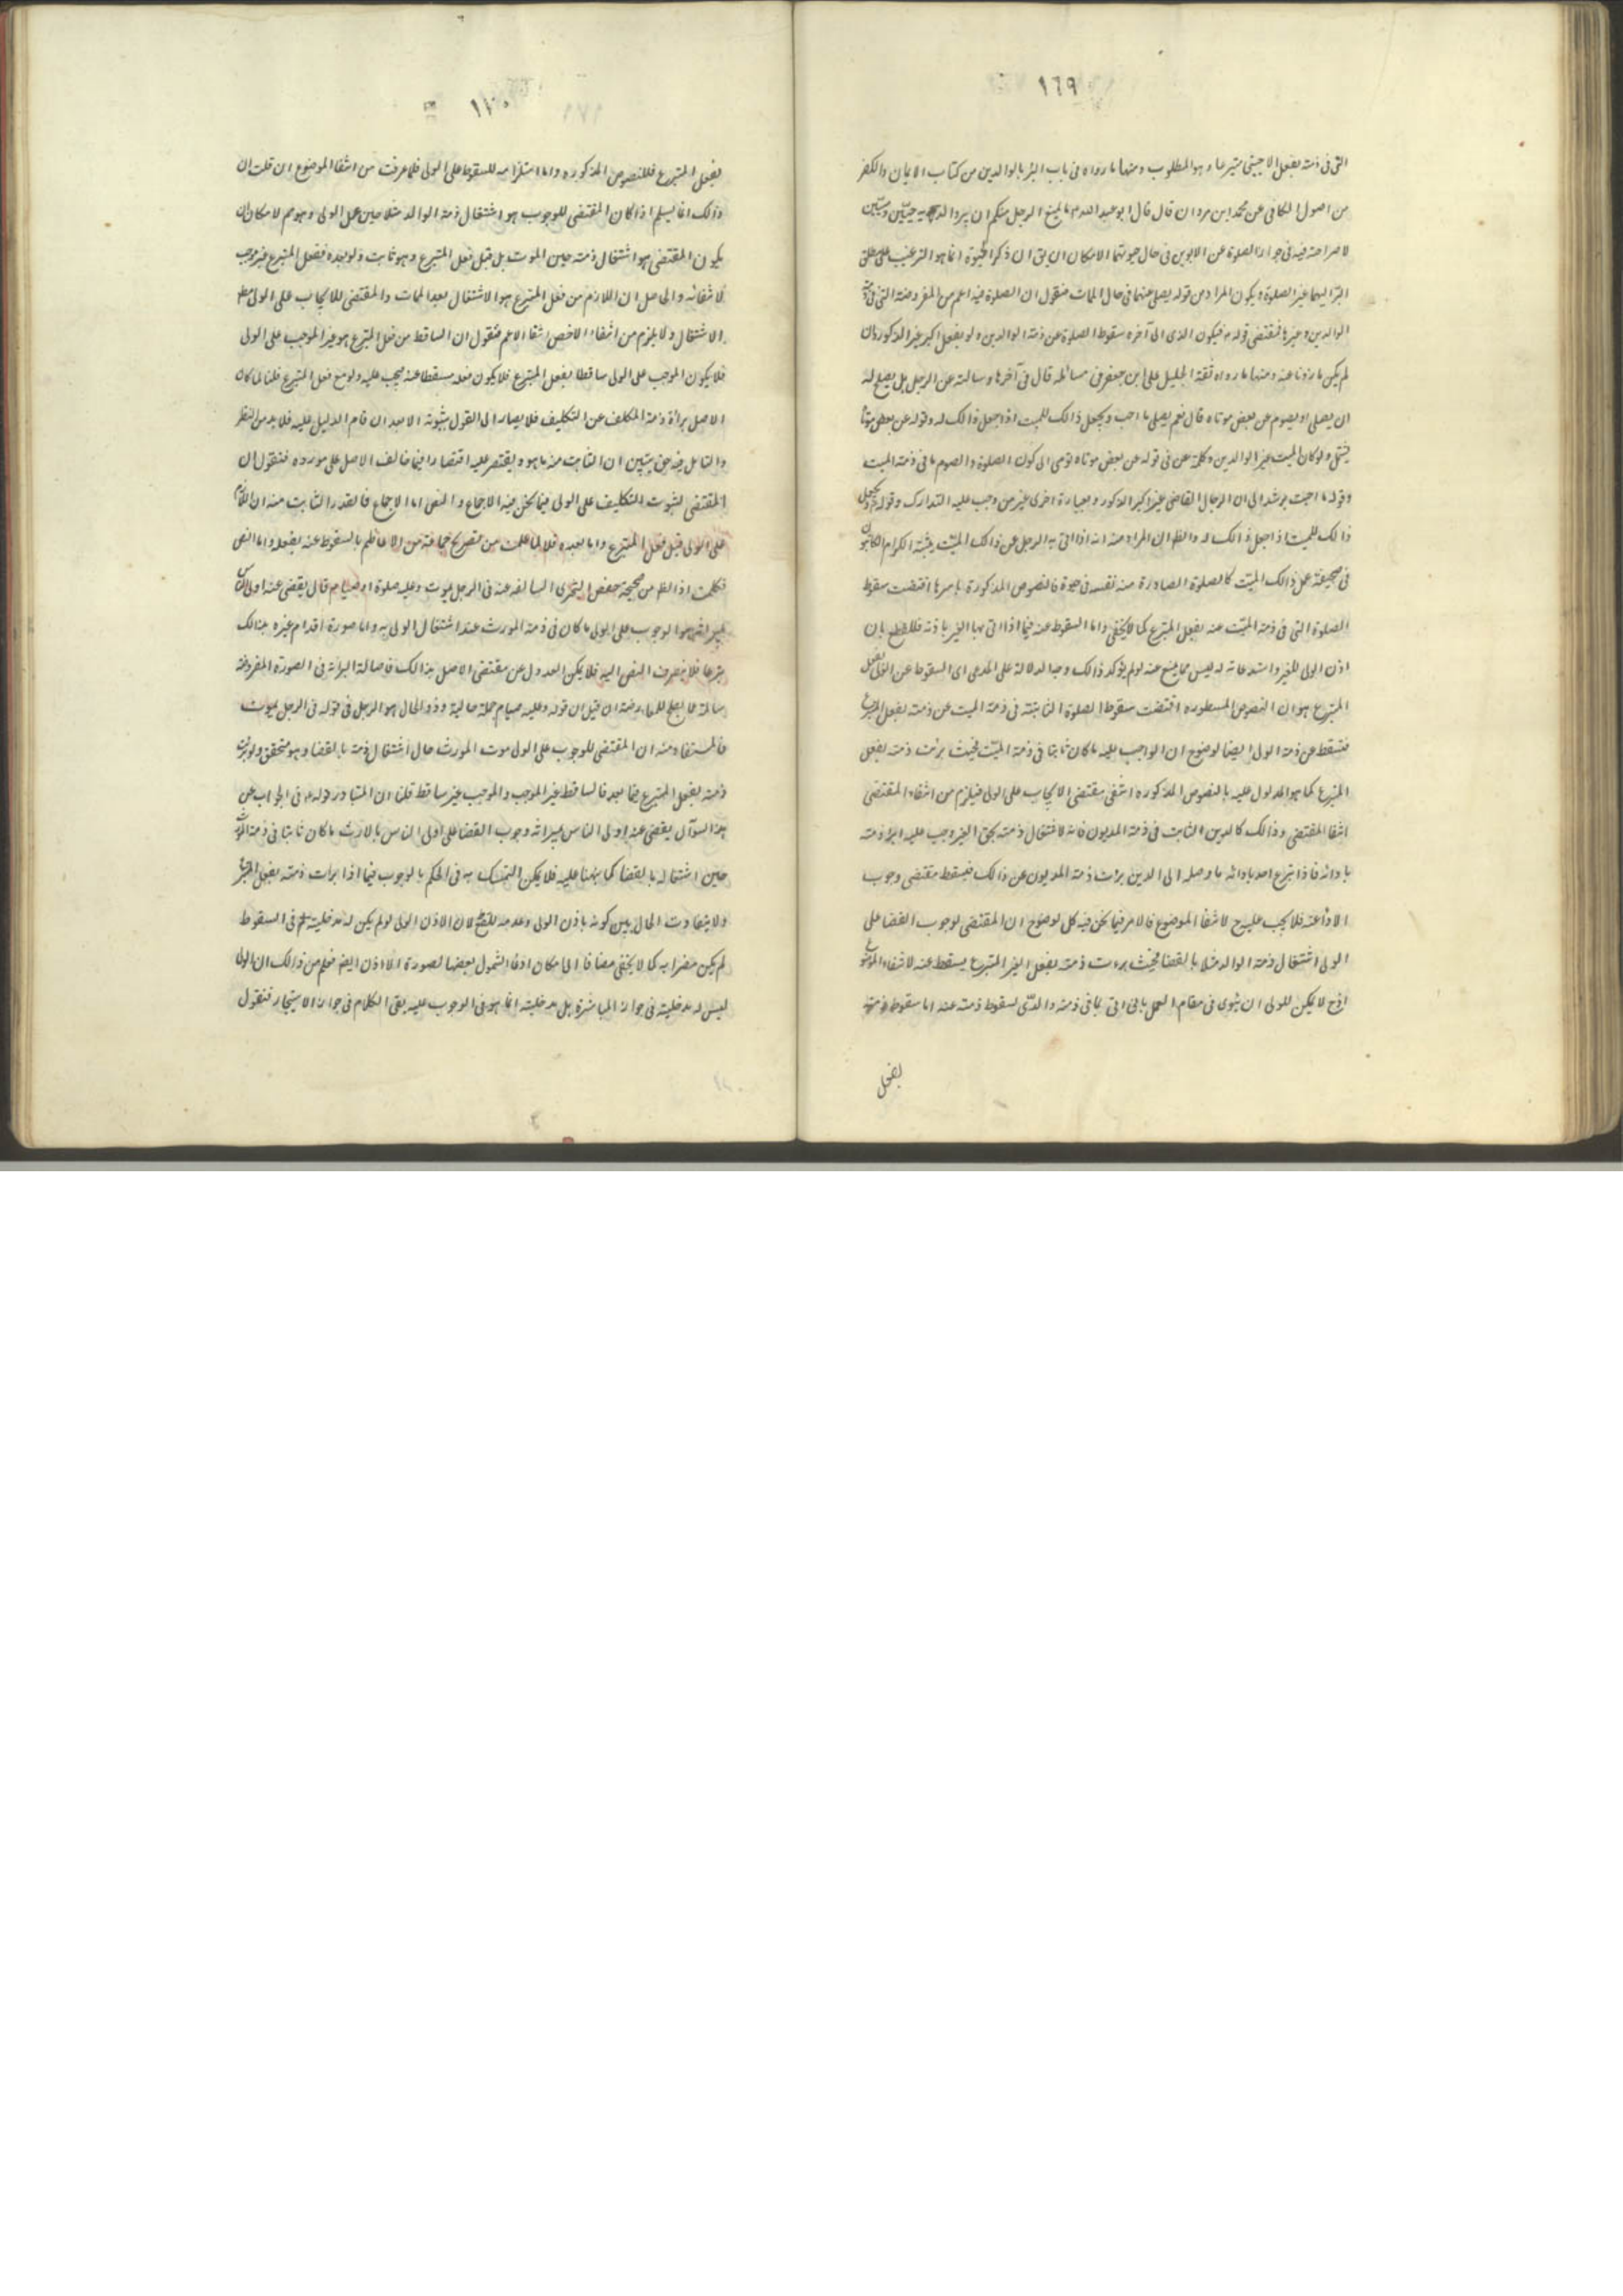 ١٦٩
التى فى ذمته بفعل الاجنبى متبرعا وهو المطلوب ومنها ما رواه فى باب البر بالوالدين من كتاب الايمان والكفر
من اصول الكافى عن محمد بن مروان قال قال ابو عبد الله ما يمنع الرجل منكم ان يبر والديه حيين وميتين
لا صراحة فيه فى جواز الصلوة عن الابوين فى حال حيوتهما لامكان ان يق ان ذكر الحيوة انما هو الترغيب على مطلق
البر اليهما غير الصلوة ويكون المراد من قوله يصلى عنهما فى حال الممات فنقول ان الصلوة فيه اعم من المفروضة التى فى ذمة
الوالدين وغيرها فمقتضى قوله فيكون الذى الى آخره سقوط الصلوة عن ذمة الوالدين ولو بفعل اكبر غير الذكور وان
لم يكن ماذونا عنه ومنها ما رواه ثقة الجليل على بن جعفر فى مسائله قال فى آخرها وسالته عن الرجل هل يصلح له
ان يصلى او يصوم عن بعض موتاه قال نعم يصلى ما احب ويجعل ذالك للميت اذا جعل ذالك له وقوله عن بعض موتاه
يشمل ولو كان الميت غير الوالدين وكلمة عن فى قوله عن بعض موتاه تومى الى كون الصلوة والصوم ما فى ذمة الميت
وقوله ما احب يرشد الى ان الرجال القاضى غير اكبر الذكور وبعبارة اخرى غير من وجب عليه التدارك وقوله ويجعل
ذالك للميت اذا جعل ذالك له والظ ان المراد منه انه اذا اتى به الرجل عن ذالك الميت يثبته الكرام الكاتبون
فى صحيفة عمل ذالك الميت كالصلوة الصادرة منه نفسه فى حيوة فالنصوص المذكورة باسرها اقتضت سقوط
الصلوة التى فى ذمة الميت عنه بفعل المتبرع كما لا يخفى واما السقوط عنه فيما اذا اتى بها الغير باذنه فللقطع بان
اذن الولى للغير واستدعائه له ليس مما يمنع عنه لو لم يؤكد ذالك وجه الدلالة على المدعى اى السقوط عن الولى بفعل
المتبرع هو ان النصوص المسطورة اقتضت سقوط الصلوة الثابتة فى ذمة الميت عن ذمته بفعل المتبرع
فتسقط عن ذمة الولى ايضا لوضوح ان الواجب عليه ما كان ثابتا فى ذمة الميت فحيث برئت ذمته بفعل
المتبرع كما هو المدلول عليه بالنصوص المذكورة انتفى مقتضى الايجاب على الولى فيلزم من انتفاء المقتضى
انتفا المقتضى وذالك كالدين الثابت فى ذمة المديون فانه لاشتغال ذمته بحق الغير وجب عليه ابراء ذمته
بادائه فاذا تبرع احد بادائه باوصله الى الدين برات ذمة المديون عن ذالك فيسقط مقتضى وجوب
الاداء عنه فلا يجب عليه ح لانتفا الموضوع فالامر فيما نحن فيه كل لوضوح ان المقتضى لوجوب القضا على
الولى اشتغال ذمة الوالد مثلا بالقضا فحيث برءت ذمته بفعل الغير المتبرع يسقط عنه لانتفاء الموضوع
اذ ح لا يمكن للولى ان ينوى فى مقام العمل بانى اتى بما فى ذمة والدى لسقوط ذمته عنه اما سقوط ذمته
بفعل
١٧٠
بفعل المتبرع فللنصوص المذكورة واما استلزامه للسقوط على الولى فلما عرفت من انتفا الموضوع ان قلت ان
ذالك انما يسلم اذا كان المقتضى للوجوب هو اشتغال ذمة الوالد مثلا حين عمل الولى وهو مم لامكان ان
يكون المقتضى هو اشتغال ذمته حين الموت بل قبل فعل المتبرع وهو ثابت ولو بعده ففعل المتبرع غير موجب
لانتفائه والحاصل ان اللازم من فعل المتبرع هو الاشتغال بعد الممات والمقتضى للايجاب على الولى مطلق
الاشتغال ولا يلزم من انتفاء الاخص انتفا الاعم فنقول ان الساقط من فعل المتبرع هو غير الموجب على الولى
فلا يكون الموجب على الولى ساقطا بفعل المتبرع فلا يكون فعله مسقطا عنه فيجب عليه ولو مع فعل المتبرع قلنا لما كان
الاصل برائة ذمة المكلف عن التكليف فلا يصار الى القول بثبوته الا بعد ان قام الدليل عليه فلا بد من النظر
والتامل فيه حق يتبين ان الثابت منه ما هو ويقتصر عليه اقتصارا فيما خالف الاصل على مورده فنقول ان
المقتضى لثبوت التكليف على الولى فيما نحن فيه الاجماع والنص اما الاجماع فالقدر الثابت منه ان اللازم
على الولى قبل فعل المتبرع واما بعده فلا لما علمت من تصريح جماعة من الاعاظم بالسقوط عنه بفعله واما النص
فكلمت اذ الظ من صحيحة حفص البخترى السالفة عنه فى الرجل يموت وعليه صلوة او صيام قال يقضى عنه اولى الناس
بميراثه هو الوجوب على الولى ما كان فى ذمة المورث عند اشتغال الولى به واما صورة اقدام غيره بذالك
تبرعا فلا ينصرف النص اليه فلا يمكن العدول عن مقتضى الاصل بذالك فاصالة البرائة فى الصورة المفروضة
سالمة عما يصلح للمعارضة ان قيل ان قوله وعليه صيام جملة حالية وذو الحال هو الرجل فى قوله فى الرجل يموت
فالمستفاد منه ان المقتضى للوجوب على الولى موت المورث حال اشتغال ذمته بالقضا وهو متحقق ولو برئت
ذمته بفعل المتبرع فيما بعد فالساقط غير الموجب والموجب غير ساقط قلنا ان المتبادر من قوله فى الجواب عن
هذا السوال يقضى عنه اولى الناس بميراثه وجوب القضا على اولى الناس بالارث ما كان ثابتا فى ذمة المورث
حين اشتغاله بالقضا كما نبهنا عليه فلا يمكن التمسك به فى الحكم بالوجوب فيما اذا برات ذمته بفعل المتبرع
ولا يتفاوت الحال بين كونه باذن الولى وعدمه للقطع لان الاذن الولى لو لم يكن له مدخلية فى السقوط
لم يكن مضرا به كما لا يخفى مضافا الى امكان ادعاء الشمول بعضها لصورة الاذن ايضا فعلم من ذالك ان الولى
ليس له مدخلية فى جواز المباشرة بل مدخليته انما هو فى الوجوب عليه بقى الكلام فى جواز الاستيجار فنقول